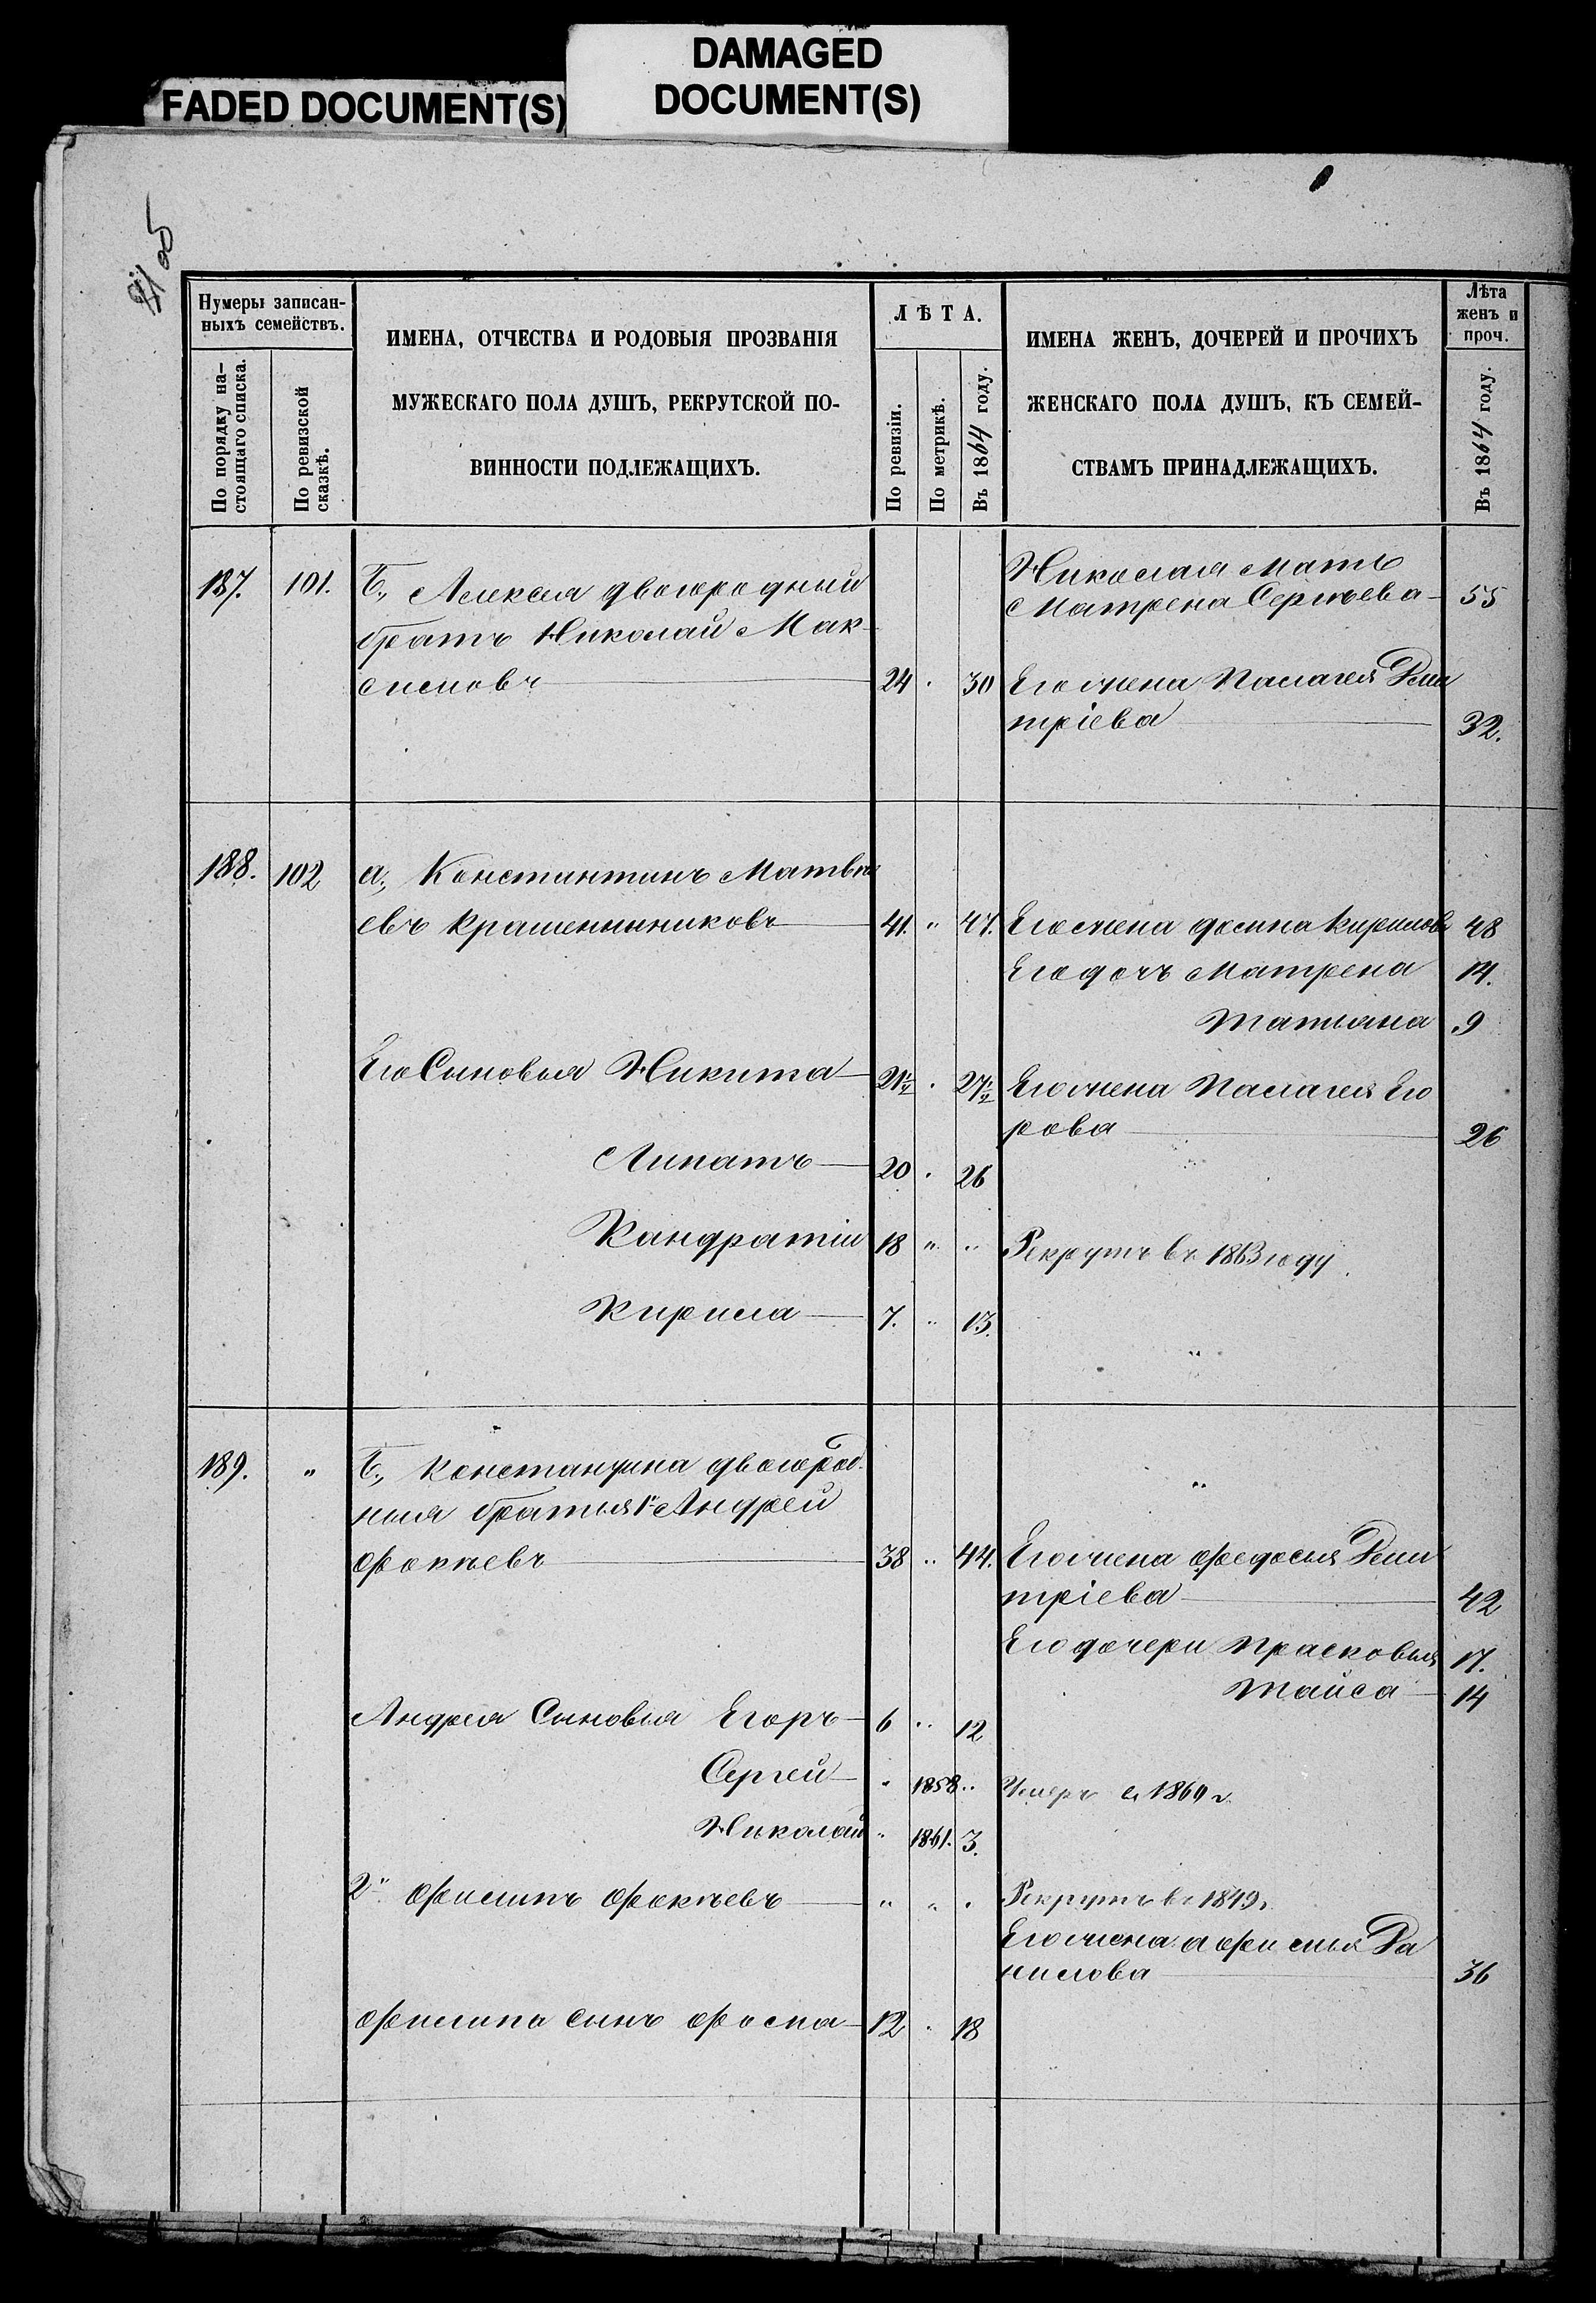 DAMAGED
DOCUMENT(S)
FADED DOCUMENT(S)
Нумеры записан-
ныхъ семействъ.
По порядку на-
стоящаго списка.
По ревизской
сказкѣ.
ИМЕНА, ОТЧЕСТВА И РОДОВЫЯ ПРОЗВАНІЯ
МУЖЕСКАГО ПОЛА ДУШЪ, РЕКРУТСКОЙ ПО-
ВИННОСТИ ПОДЛЕЖАЩИХЪ.
ЛѢТА.
По ревизіи.
По метрикѣ.
Въ 1864 году.
ИМЕНА ЖЕНЪ, ДОЧЕРЕЙ И ПРОЧИХЪ
ЖЕНСКАГО ПОЛА ДУШЪ, КЪ СЕМЕЙ-
СТВАМЪ ПРИНАДЛЕЖАЩИХЪ.
Лѣта
женъ и
проч.
Въ 1864 году.
Николая мать
187. 101. Б., Алексея двоюродный
Матрена Сергѣева 55
братъ Николай Мак-
симовъ 24 . 30 Его жена Палагея Дми
тріева 32.
188. 102 а., Константинъ Матвѣ
евъ Крашенинниковъ 41. " 47. Его жена Фокина Кирилова 48
Его дочь Матрена 14.
Татьяна 9
Его Сыновья Никита 21½ . 27½ Его жена Палагея Его
рова 26
Липатъ 20 . 26
Кандратій 18 " " Рекрутъ въ 1863 году.
Кирила 7. " 13.
"
189. " Б., Константина двоюрод-
"
ныя братья 1й Андрей
Фокѣевъ 38 " 44. Его жена Федосья Дми
тріева 42
Его дочери Прасковья 17.
Таиса 14
Андрея Сыновья Егоръ 6 " 12
Сергей " 1858 " Умеръ в 1860 г.
Николай " 1861. 3.
2й Филипъ Фокѣевъ " " . Рекрутъ въ 1849г.
Его жена Афимья Да
нилова 36
Филипа сынъ Фома 12 . 18